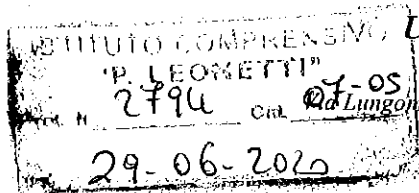 ISTITUTO COMPRENSIVO
"P. LEONETTI"
Prot. N 2794 Cat. 07-05
29-06-2020